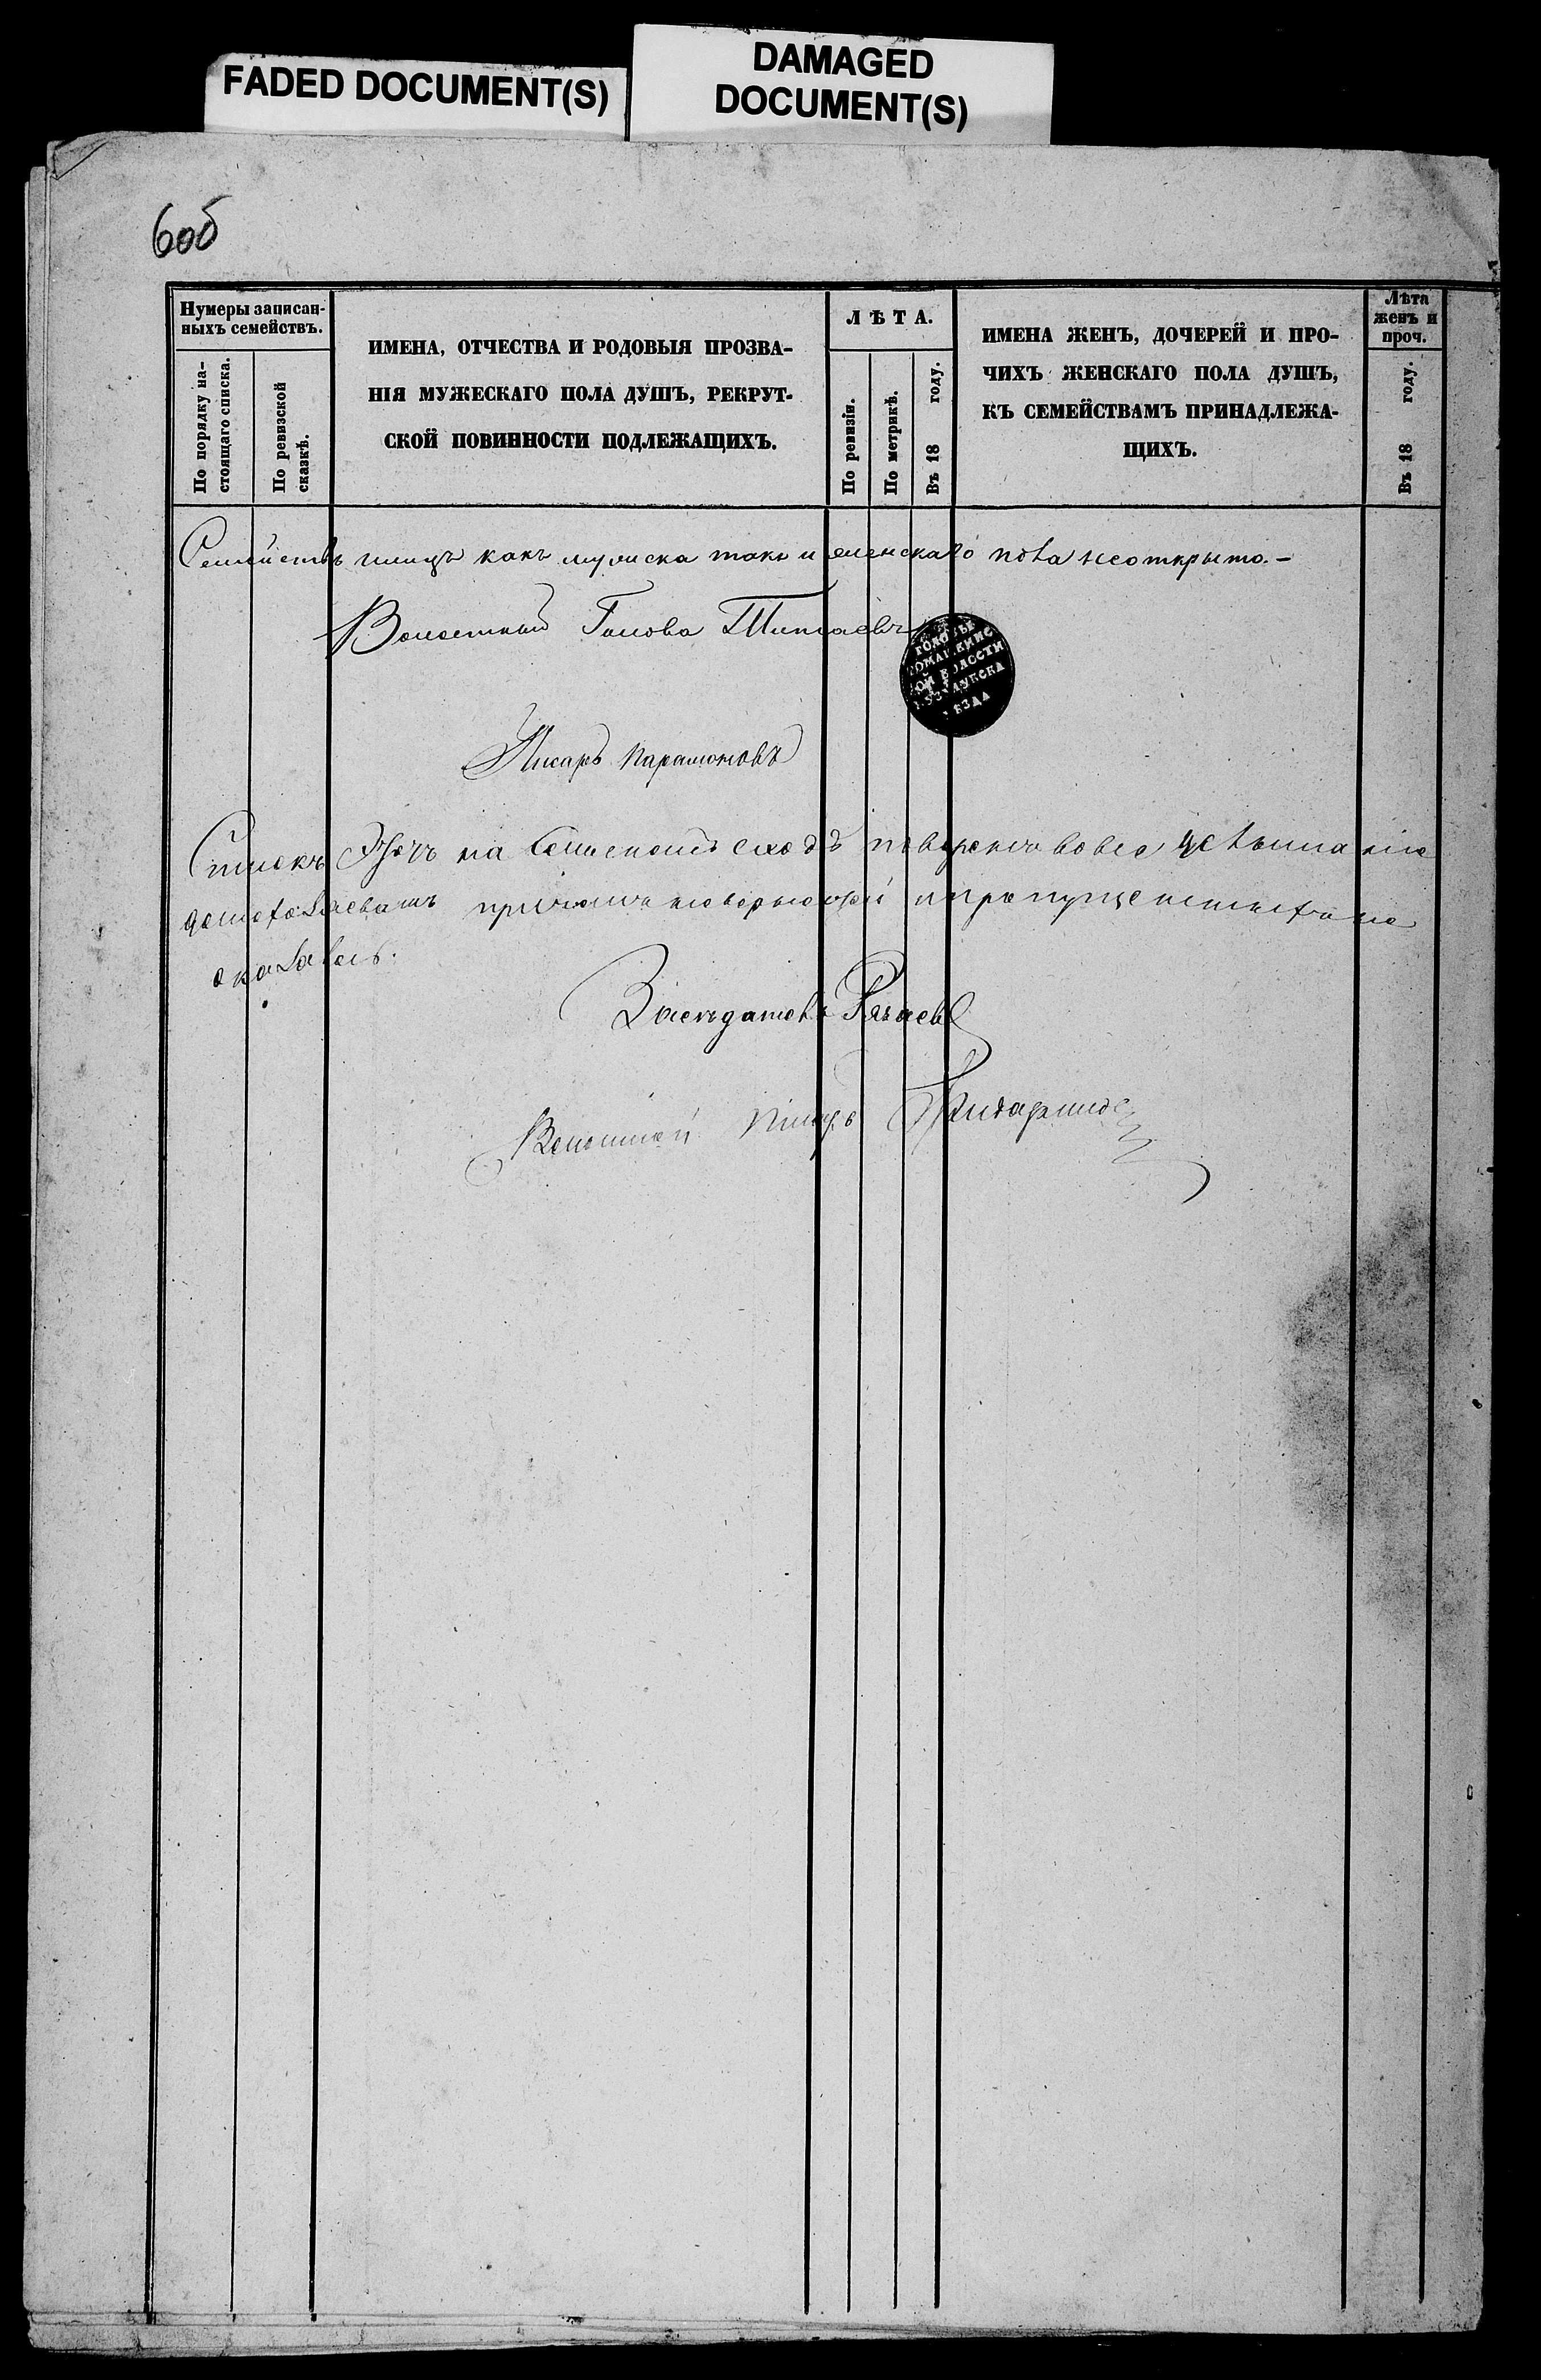 FADED DOCUMENT(S)
DAMAGED
DOCUMENT(S)
60об
Нумеры записан-
ныхъ семействъ.
По порядку на-
стоящаго списка.
По ревизской
сказкѣ.
ИМЕНА, ОТЧЕСТВА И РОДОВЫЯ ПРОЗВА-
НІЯ МУЖЕСКАГО ПОЛА ДУШЪ, РЕКРУТ-
СКОЙ ПОВИННОСТИ ПОДЛЕЖАЩИХЪ.
ЛѢТА.
По ревизіи.
По метрикѣ.
Въ 18 году.
ИМЕНА ЖЕНЪ, ДОЧЕРЕЙ И ПРО-
ЧИХЪ ЖЕНСКАГО ПОЛА ДУШЪ,
КЪ СЕМЕЙСТВАМЪ ПРИНАДЛЕЖА-
ЩИХЪ.
Лѣта
женъ и
проч.
Въ 18 году.
Семействъ какъ мужска такъ и женскаго пола неоткрыто.-
Волостный Голова
ГОЛОВЫ
ОЙ ВОЛОСТИ
Писарь Парамоновъ
Списокъ сей на сходѣ повѣренъ во всѣ
при чемъ невѣрностей и
оказалось.
Волостной Писарь